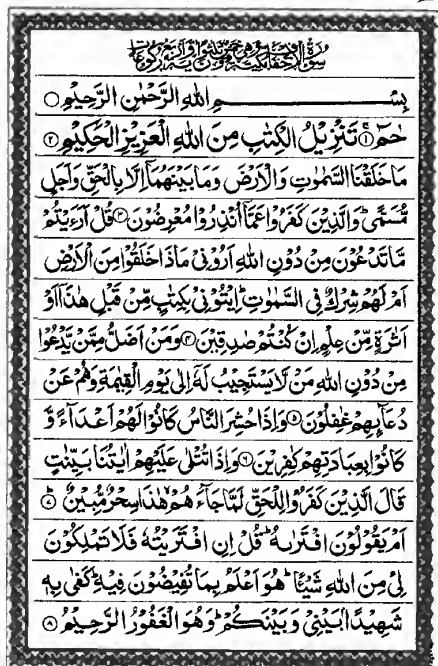 سُوْرَةُ الْاَحْقَافِ مَكِّيَّةٌ وَّهِيَ خَمْسٌ وَّثَلٰثُوْنَ اٰيَةً وَّاَرْبَعُ رُكُوْعَاتٍ
بِسْــــــمِ اللهِ الرَّحْمٰنِ الرَّحِيْمِ
حٰمٓ ۱ تَنْزِيْلُ الْكِتٰبِ مِنَ اللهِ الْعَزِيْزِ الْحَكِيْمِ ۲
مَا خَلَقْنَا السَّمٰوٰتِ وَالْاَرْضَ وَمَا بَيْنَهُمَآ اِلَّا بِالْحَقِّ وَاَجَلٍ
مُّسَمًّى ؕ وَالَّذِيْنَ كَفَرُوْا عَمَّآ اُنْذِرُوْا مُعْرِضُوْنَ ۳ قُلْ اَرَءَيْتُمْ
مَّا تَدْعُوْنَ مِنْ دُوْنِ اللهِ اَرُوْنِيْ مَاذَا خَلَقُوْا مِنَ الْاَرْضِ
اَمْ لَهُمْ شِرْكٌ فِي السَّمٰوٰتِ ؕ اِيْتُوْنِيْ بِكِتٰبٍ مِّنْ قَبْلِ هٰذَآ اَوْ
اَثٰرَةٍ مِّنْ عِلْمٍ اِنْ كُنْتُمْ صٰدِقِيْنَ ۴ وَمَنْ اَضَلُّ مِمَّنْ يَّدْعُوْا
مِنْ دُوْنِ اللهِ مَنْ لَّا يَسْتَجِيْبُ لَهٗٓ اِلٰى يَوْمِ الْقِيٰمَةِ وَهُمْ عَنْ
دُعَآئِهِمْ غٰفِلُوْنَ ۵ وَاِذَا حُشِرَ النَّاسُ كَانُوْا لَهُمْ اَعْدَآءً وَّ
كَانُوْا بِعِبَادَتِهِمْ كٰفِرِيْنَ ۶ وَاِذَا تُتْلٰى عَلَيْهِمْ اٰيٰتُنَا بَيِّنٰتٍ
قَالَ الَّذِيْنَ كَفَرُوْا لِلْحَقِّ لَمَّا جَآءَهُمْ هٰذَا سِحْرٌ مُّبِيْنٌ ۷
اَمْ يَقُوْلُوْنَ افْتَرٰىهُ ؕ قُلْ اِنِ افْتَرَيْتُهٗ فَلَا تَمْلِكُوْنَ
لِيْ مِنَ اللهِ شَيْـًٔا ؕ هُوَ اَعْلَمُ بِمَا تُفِيْضُوْنَ فِيْهِ ؕ كَفٰى بِهٖ
شَهِيْدًۢا بَيْنِيْ وَبَيْنَكُمْ ؕ وَهُوَ الْغَفُوْرُ الرَّحِيْمُ ۸